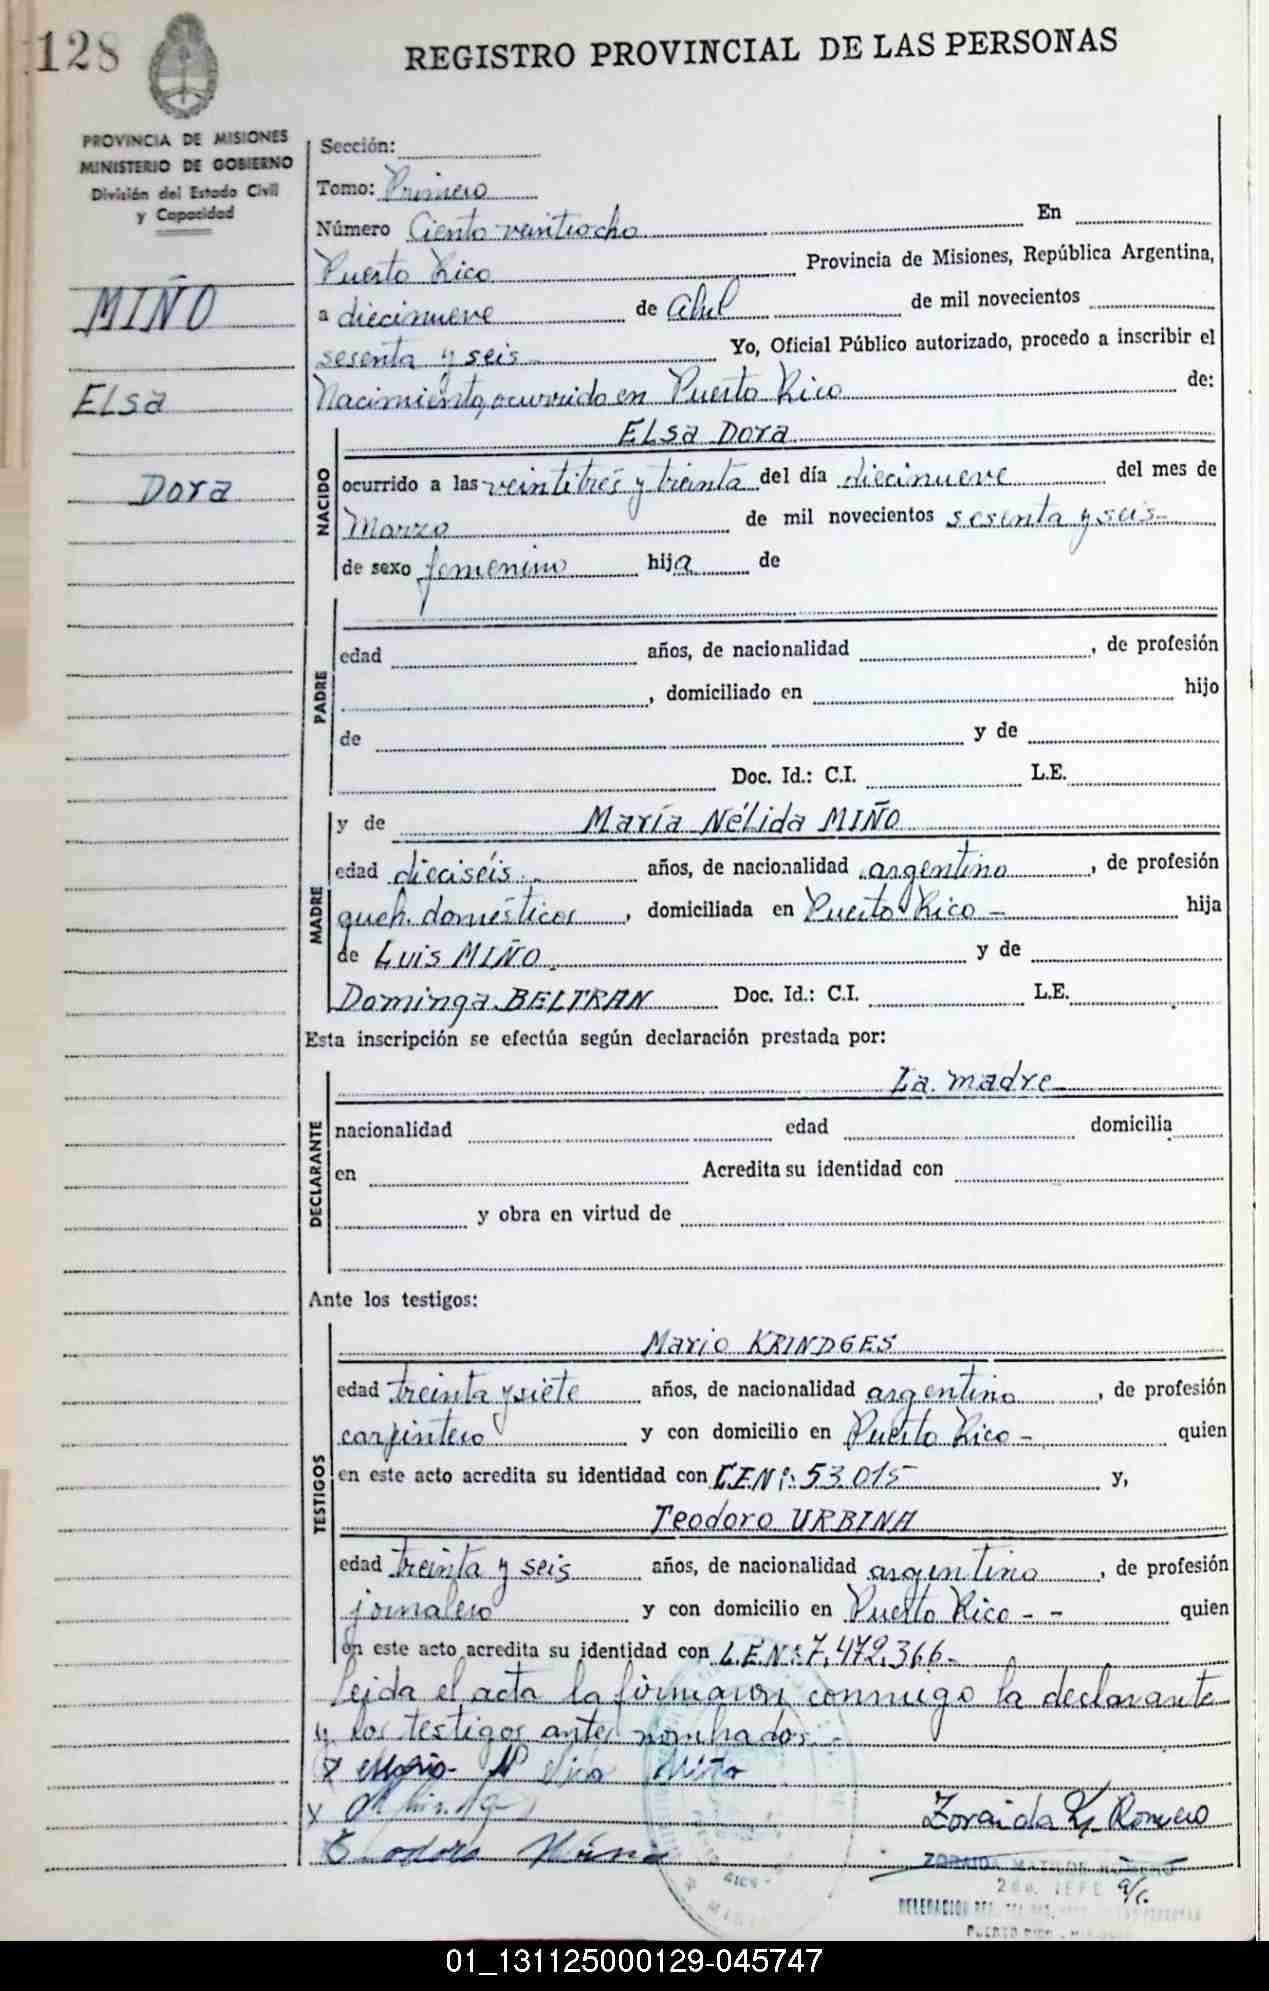 128
REGISTRO PROVINCIAL DE LAS PERSONAS
PROVINCIA DE MISIONES
MINISTERIO DE GOBIERNO
División del Estado Civil
y Capacidad
MIÑO
Elsa
Dora
Sección:
Tomo: Primero
Número Ciento veintiocho En
Puerto Rico Provincia de Misiones, República Argentina,
a diecinueve de Abril de mil novecientos
sesenta y seis Yo, Oficial Público autorizado, procedo a inscribir el
Nacimiento, ocurrido en Puerto Rico de:
NACIDO
Elsa Dora
ocurrido a las veintitrés y treinta del día diecinueve del mes de
Marzo de mil novecientos sesenta y seis
de sexo femenino hija de
PADRE
edad años, de nacionalidad , de profesión
, domiciliado en hijo
de y de
Doc. Id.: C.I. L.E.
MADRE
y de María Nélida MIÑO
edad dieciséis años, de nacionalidad argentina , de profesión
queh. domésticos , domiciliada en Puerto Rico - hija
de Luis MIÑO y de
Dominga BELTRAN Doc. Id.: C.I. L.E.
Esta inscripción se efectúa según declaración prestada por:
DECLARANTE
La madre
nacionalidad edad domicilia
en Acredita su identidad con
y obra en virtud de
Ante los testigos:
TESTIGOS
Mario KRINDGES
edad treinta y siete años, de nacionalidad argentino , de profesión
carpintero y con domicilio en Puerto Rico - quien
en este acto acredita su identidad con C.E Nº: 53.015 y,
Teodoro URBINA
edad treinta y seis años, de nacionalidad argentino , de profesión
jornalero y con domicilio en Puerto Rico - - quien
en este acto acredita su identidad con L.E.Nº: 7.472.366-
Leida el acta la firmaron conmigo la declarante
y los testigos antes nombrados.-
x Maria
x
Zoraida M. Romero
ZORAIDA MATILDE ROMERO
2do. JEFE a/c.
PUERTO RICO
01_131125000129-045747